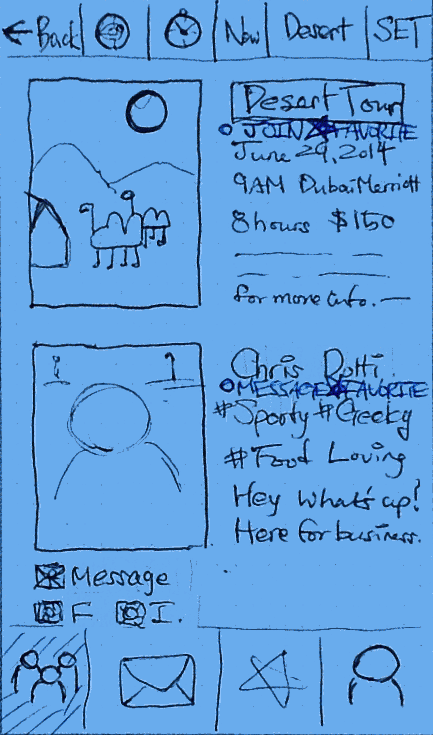 ← Back Now Desert SET
Desert Tour
JOIN ☆ FAVORITE
June 29, 2014
9AM Dubai Merriott
8 hours $150
for more info.
Chris Dotti
MESSAGE ☆ FAVORITE
#Sporty #Geeky
#Food Loving
Hey what's up!
Here for business.
Message
F I.